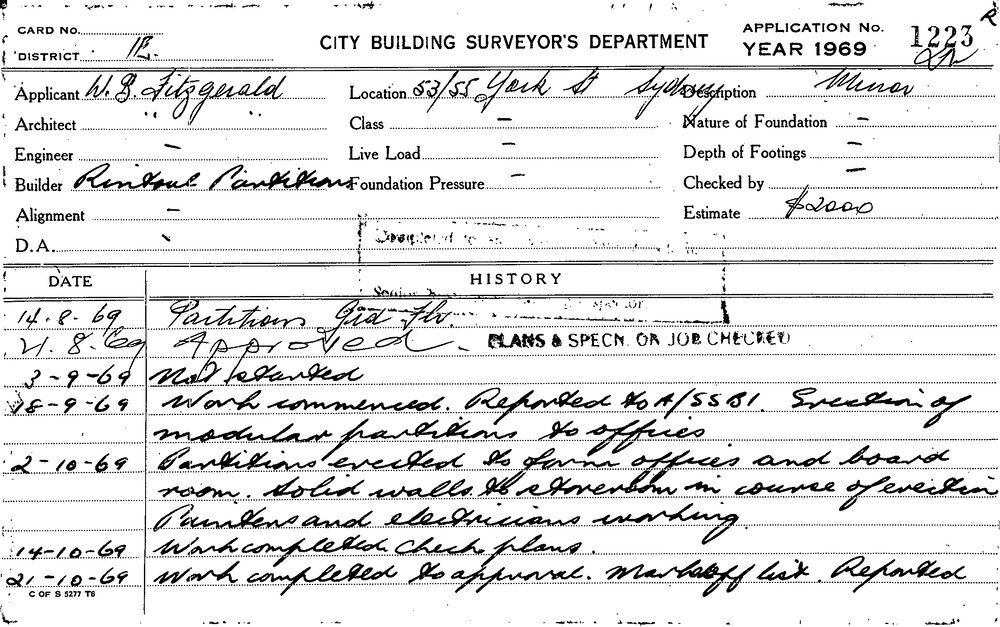 R
CARD No.
CITY BUILDING SURVEYOR'S DEPARTMENT
APPLICATION No. 1223
DISTRICT 1E.
YEAR 1969
Applicant W. B. Fitzgerald
Location 53/55 York St Sydney
Description Minor
Architect " "
Class –
Nature of Foundation –
Engineer –
Live Load –
Depth of Footings –
Builder Rintoul Partitions
Foundation Pressure –
Checked by –
Alignment –
Estimate $2000
D.A.
Completed to
DATE
HISTORY
14.8.69 Partitions Grd Flr.
21.8.69 Approved.
PLANS & SPECN. ON JOB CHECKED
3-9-69 Not started
18-9-69 Work commenced. Reported to A/SSBI. Erection of
modular partitions to offices
2-10-69 Partitions erected to form offices and board
room. Solid walls to storeroom in course of erection
Painters and electricians working.
14-10-69 Work completed. Check plans.
21-10-69 Work completed to approval. Mark off list. Reported
C OF S 5277 T8